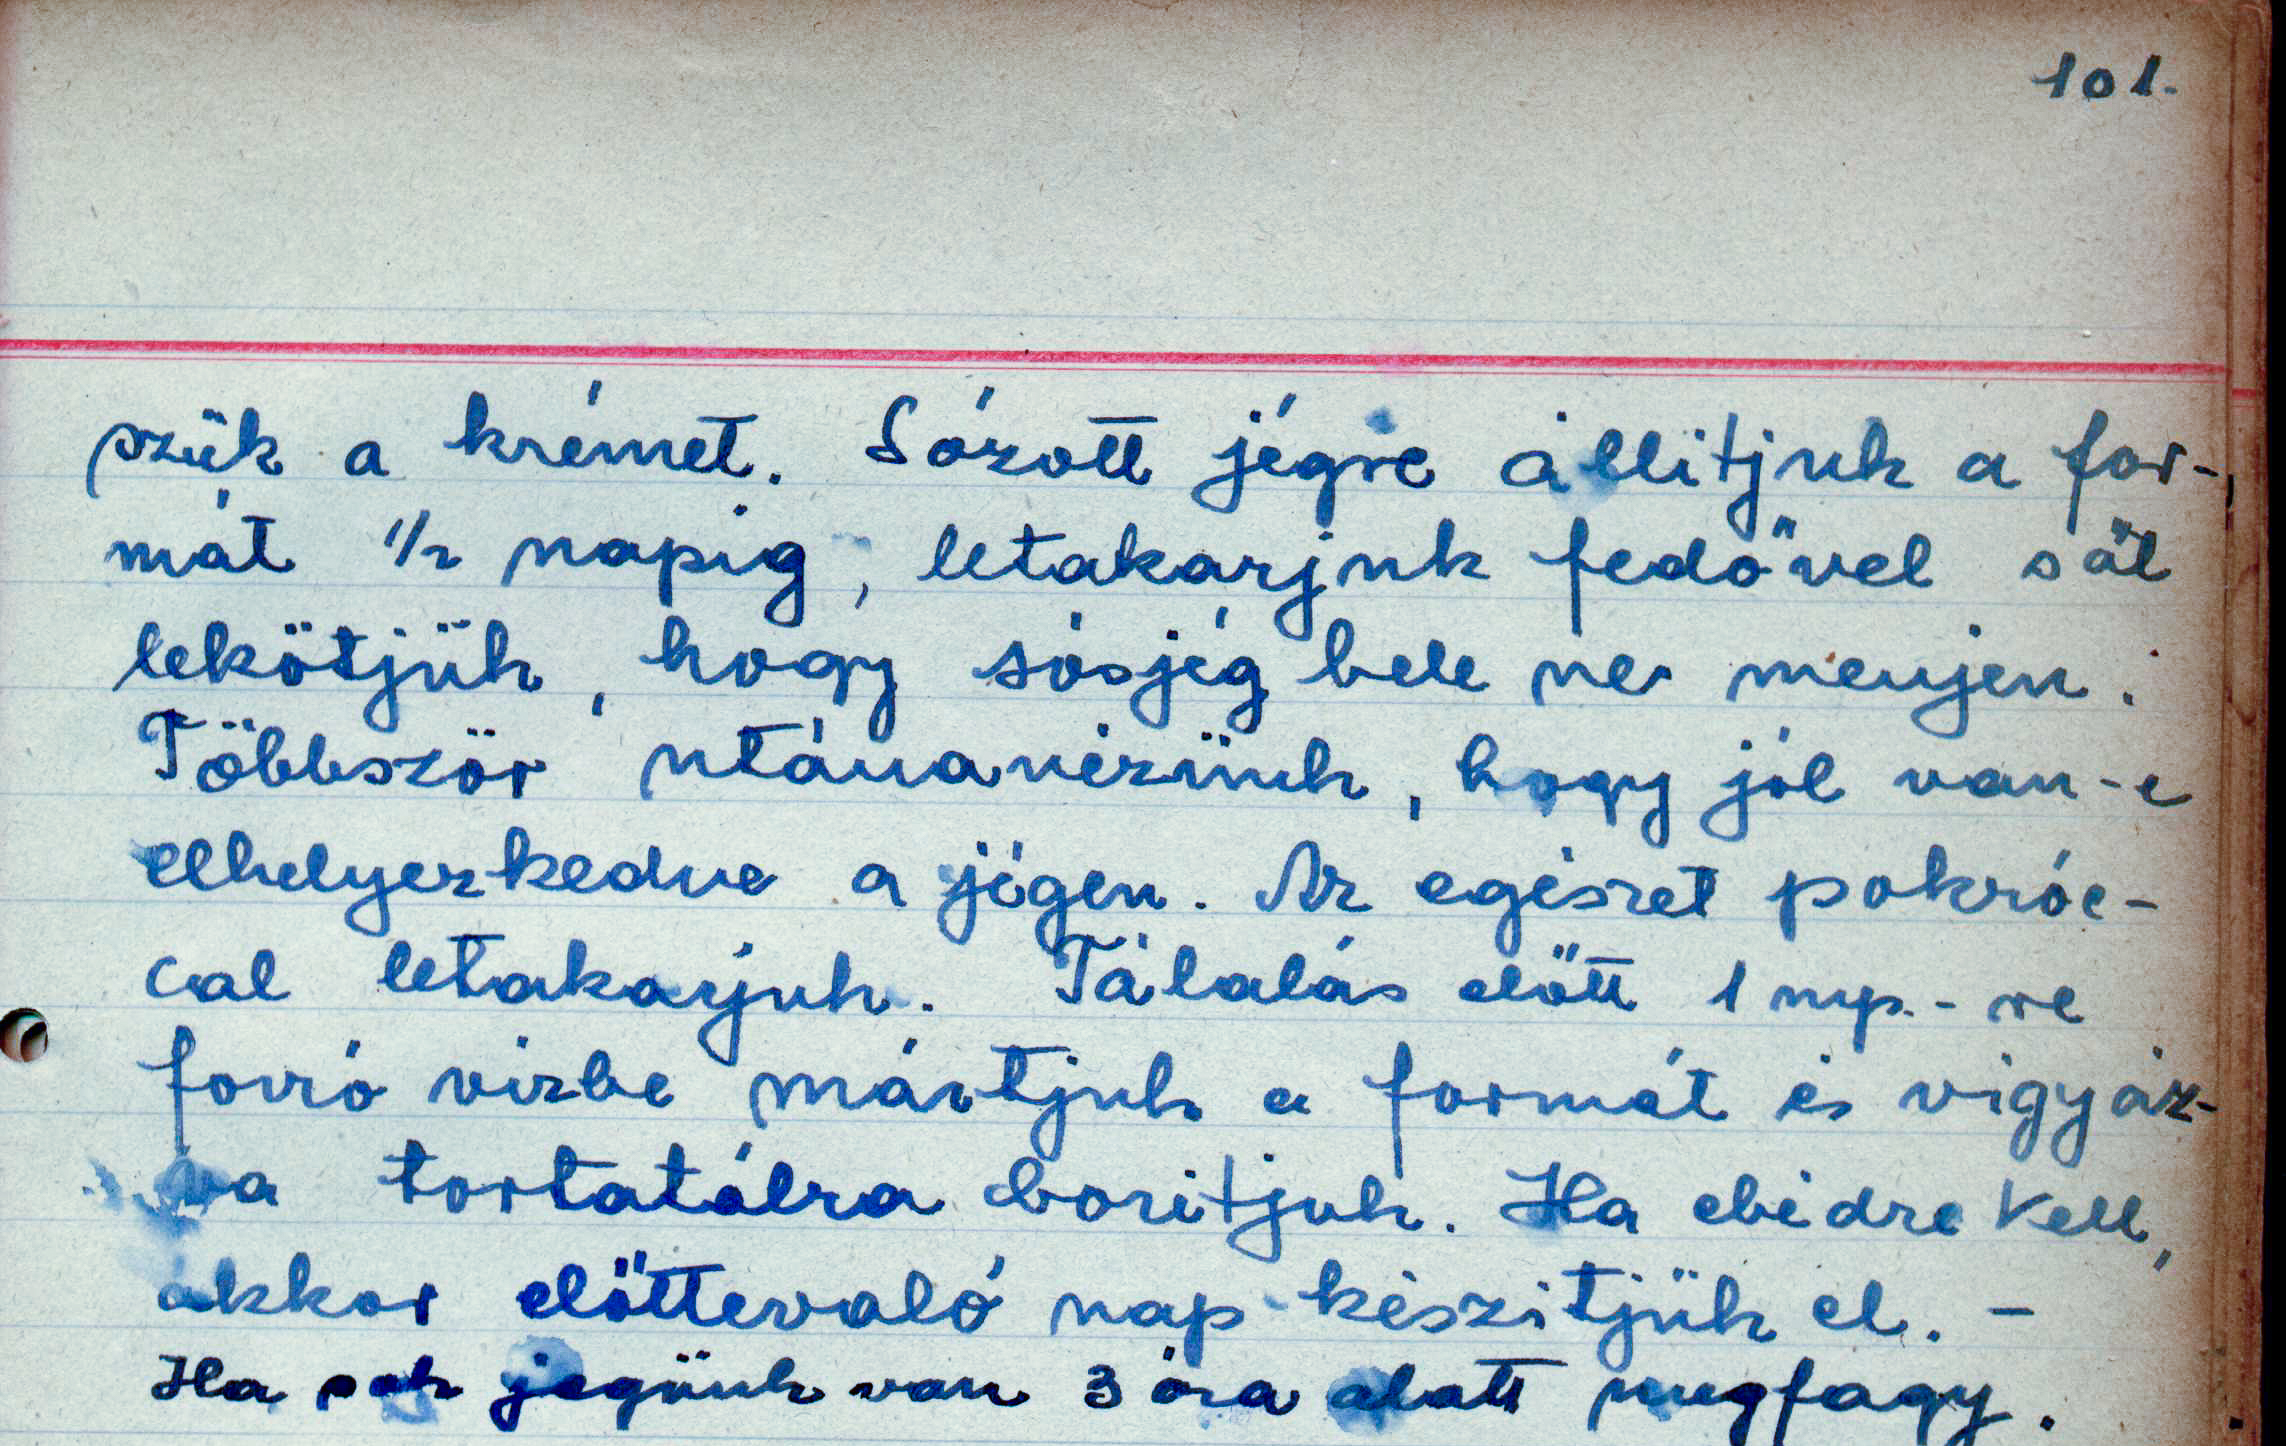 101.
szük a krémet. Sózott jégre állitjuk a for-
mát 1/2 napig, letakarjuk fedővel s át
lekötjük, hogy sósjég bele ne menjen.
Többször utánanézünk, hogy jól van-e
elhelyezkedve a jégen. Az egészet pokróc-
cal letakarjuk. Tálalás előtt 1 mp.-re
forró vizbe mártjuk a formát és vigyáz-
va tortatálra boritjuk. Ha ebédre kell,
akkor előttevaló nap készitjük el. -
Ha sok jegünk van 3 óra alatt megfagy.